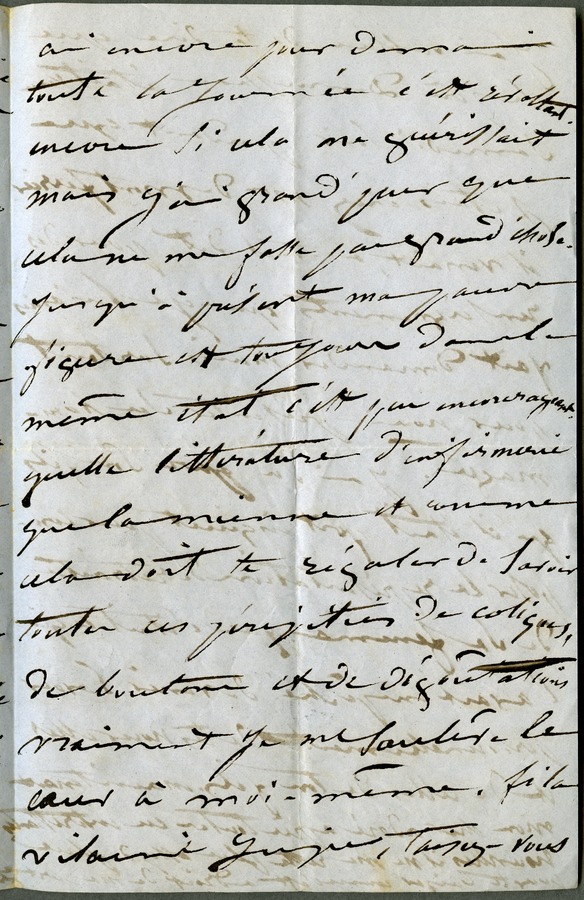 ai encore pour demain
toute la journée c'est révoltant.
encore si cela me guérissait
mais j'ai grand' peur que
cela ne me fasse pas grand'chose.
jusqu'à présent ma pauvre
figure est toujours dans le
même état c'est peu encourageant.
quelle littérature d'infirmerie
que la mienne et comme
cela doit te régaler de savoir
toutes ces péripéties de coliques,
de boutons et de dégoûtations
vraiment je me soulève le
cœur à moi-même. fi la
vilaine Juju, taisez-vous